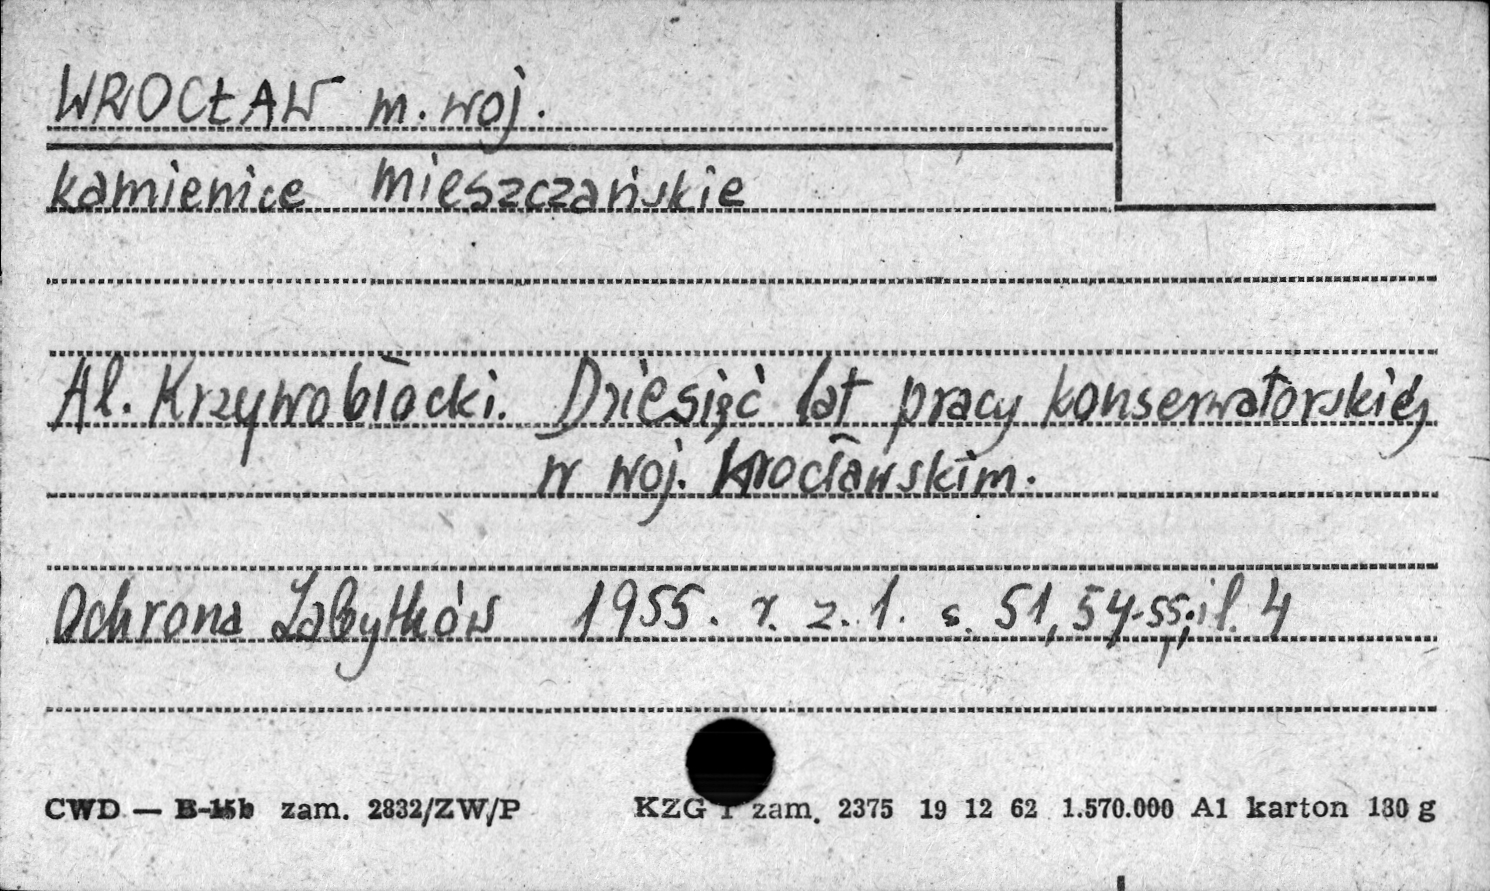 WROCŁAW m. woj.
kamienice mieszczańskie
Al. Krzywobłocki. Dziesięć lat pracy konserwatorskiej
w woj. wrocławskim.
Ochrona Zabytków 1955. r. z. 1. s. 51, 54-55; il. 4
CWD — B-15b zam. 2832/ZW/P KZG 1 zam. 2375 19 12 62 1.570.000 A1 karton 180 g